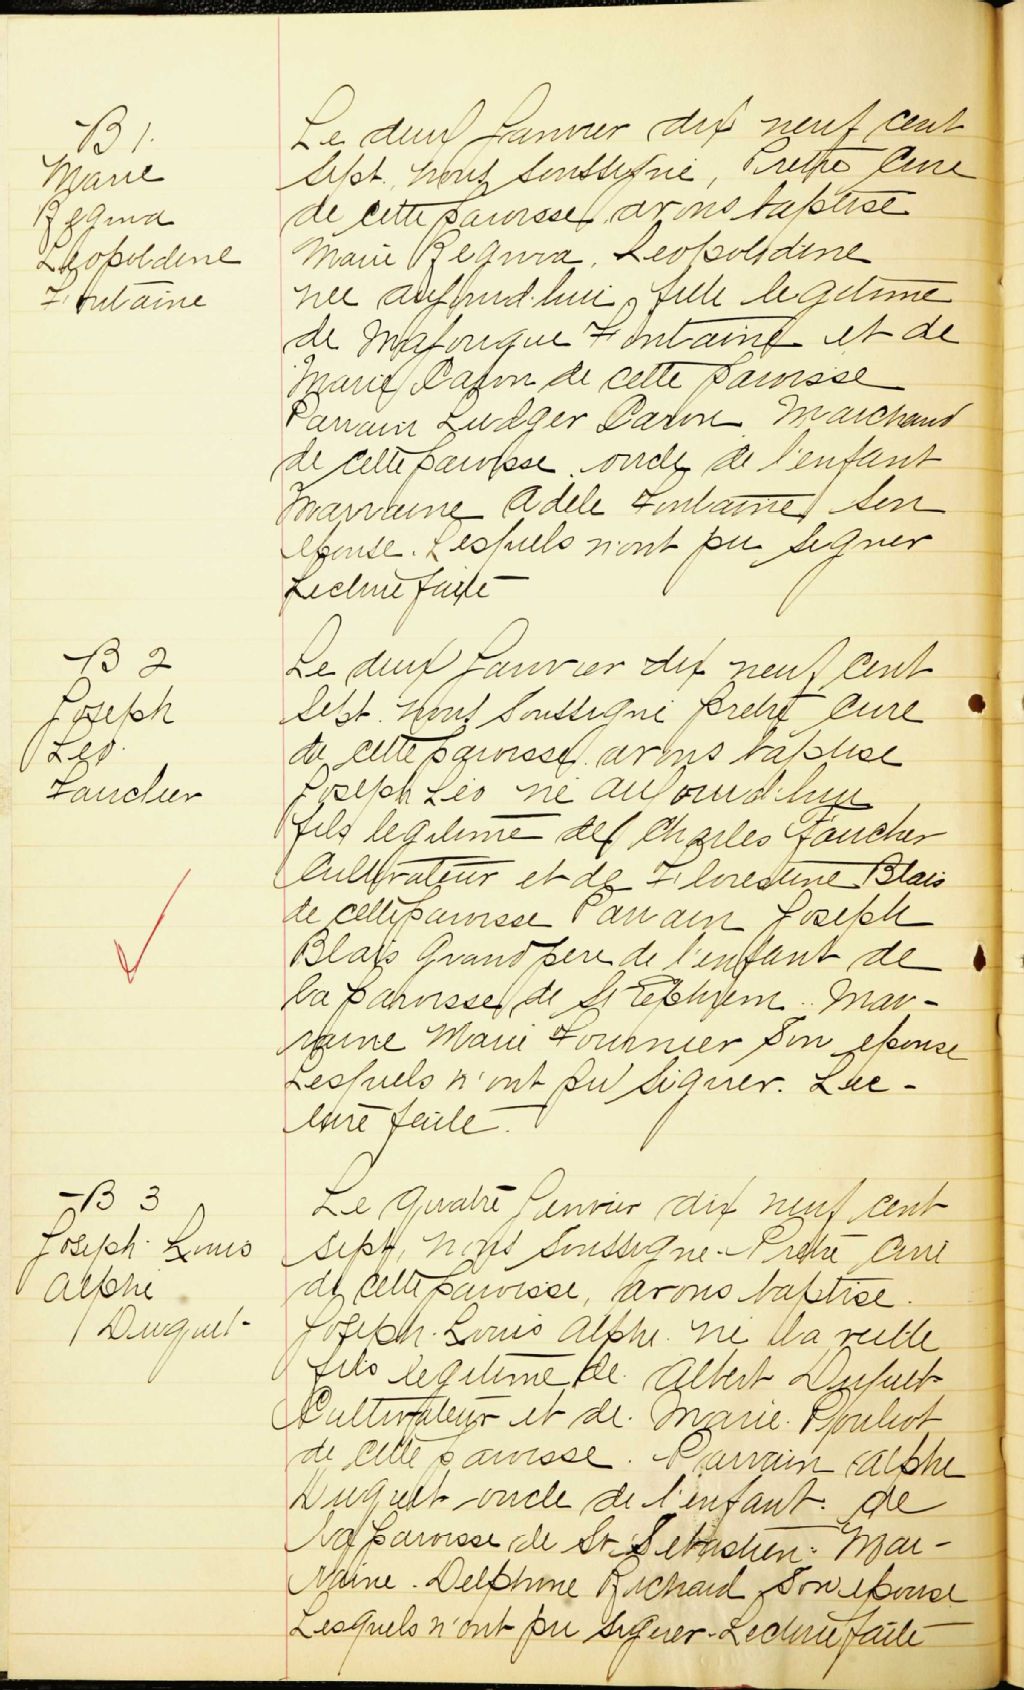 B 1.
Marie
Regina
Leopoldine
Fontaine
Le deux Janvier dix neuf cent
Sept, nous soussigné, Pretre Cure
de cette paroisse avons baptise
Marie Regina, Leopoldine
nee aujourd'hui, fille legitime
de Fontaine et de
Marie Caron de cette paroisse
Parrain Ludger Caron Marchand
de cette paroisse, oncle de l'enfant
Marraine Adele Fontaine, son
epouse. Lesquels n'ont pu signer
Lecture faite
B 2
Joseph
Leo.
Faucher
Le deux Janvier dix neuf cent
Sept. nous soussigné pretre Cure
de cette paroisse avons baptise
Joseph Léo né aujourd'hui
fils legitime de Charles Faucher
Cultivateur et de Florestine Blais
de cette paroisse Parrain Joseph
Blais Grand pere de l'enfant de
la paroisse de St Ephrem.. Mar-
raine Marie Fournier Son epouse
Lesquels n'ont pu signer. Lec-
ture faite.
B 3
Joseph Louis
Alphé
Duquet
Le quatre Janvier dix neuf cent
sept, nous soussigne Pretre Curé
de cette paroisse, avons baptise.
Joseph Louis Alphe né la veille
fils legitime de Albert Duquet
Cultivateur et de Marie Pouliot
de cette paroisse. Parrain Alphe
Duquet oncle de l'enfant. de
la paroisse de St Sebastien. Mar-
raine. Delphine Richard son epouse
Lesquels n'ont pu signer. Lecture faite